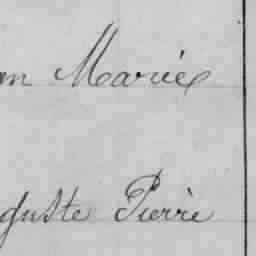 an Marie
guste Pierre